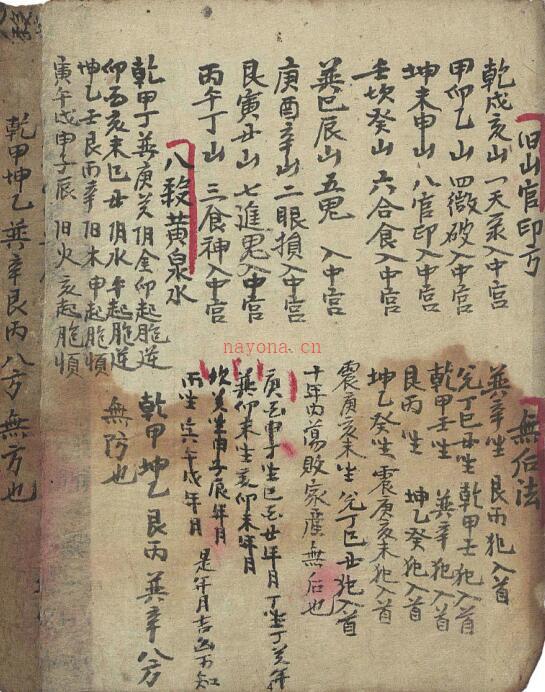 旧山官印方
乾戌亥山一天录入中宫
甲卯乙山四微破入中宫
坤未申山八官印入中宫
壬坎癸山六合食入中宫
巽巳辰山五鬼入中宫
庚酉辛山二眼損入中宫
艮寅丑山七進鬼入中宫
丙午丁山三食神入中宫
八殺黄泉水
乾甲丁巽庚癸旧金卯起胞逆
丙亥未巳丑旧水午起胞逆
坤乙壬艮丙辛旧木申起胞順
寅午戌甲子辰旧火亥起胞順
無后法
巽辛生艮丙犯入首
兌丁巳丑生乾甲壬犯入首
乾甲壬生巽辛犯入首
艮丙生坤乙癸犯入首
坤乙癸生震庚亥未犯入首
震庚亥未生兌丁巳丑犯入首
十年内蕩敗家産無后也
庚丁生巳丑年月丁生丁癸年
巽卯未生亥卯未年月
坎癸生申子辰年月
丙生寅午戌年月是年月吉凶可知
乾甲坤乙艮丙巽辛八方
無防也
乾甲坤乙巽辛艮丙八方無方也
nayona.cn